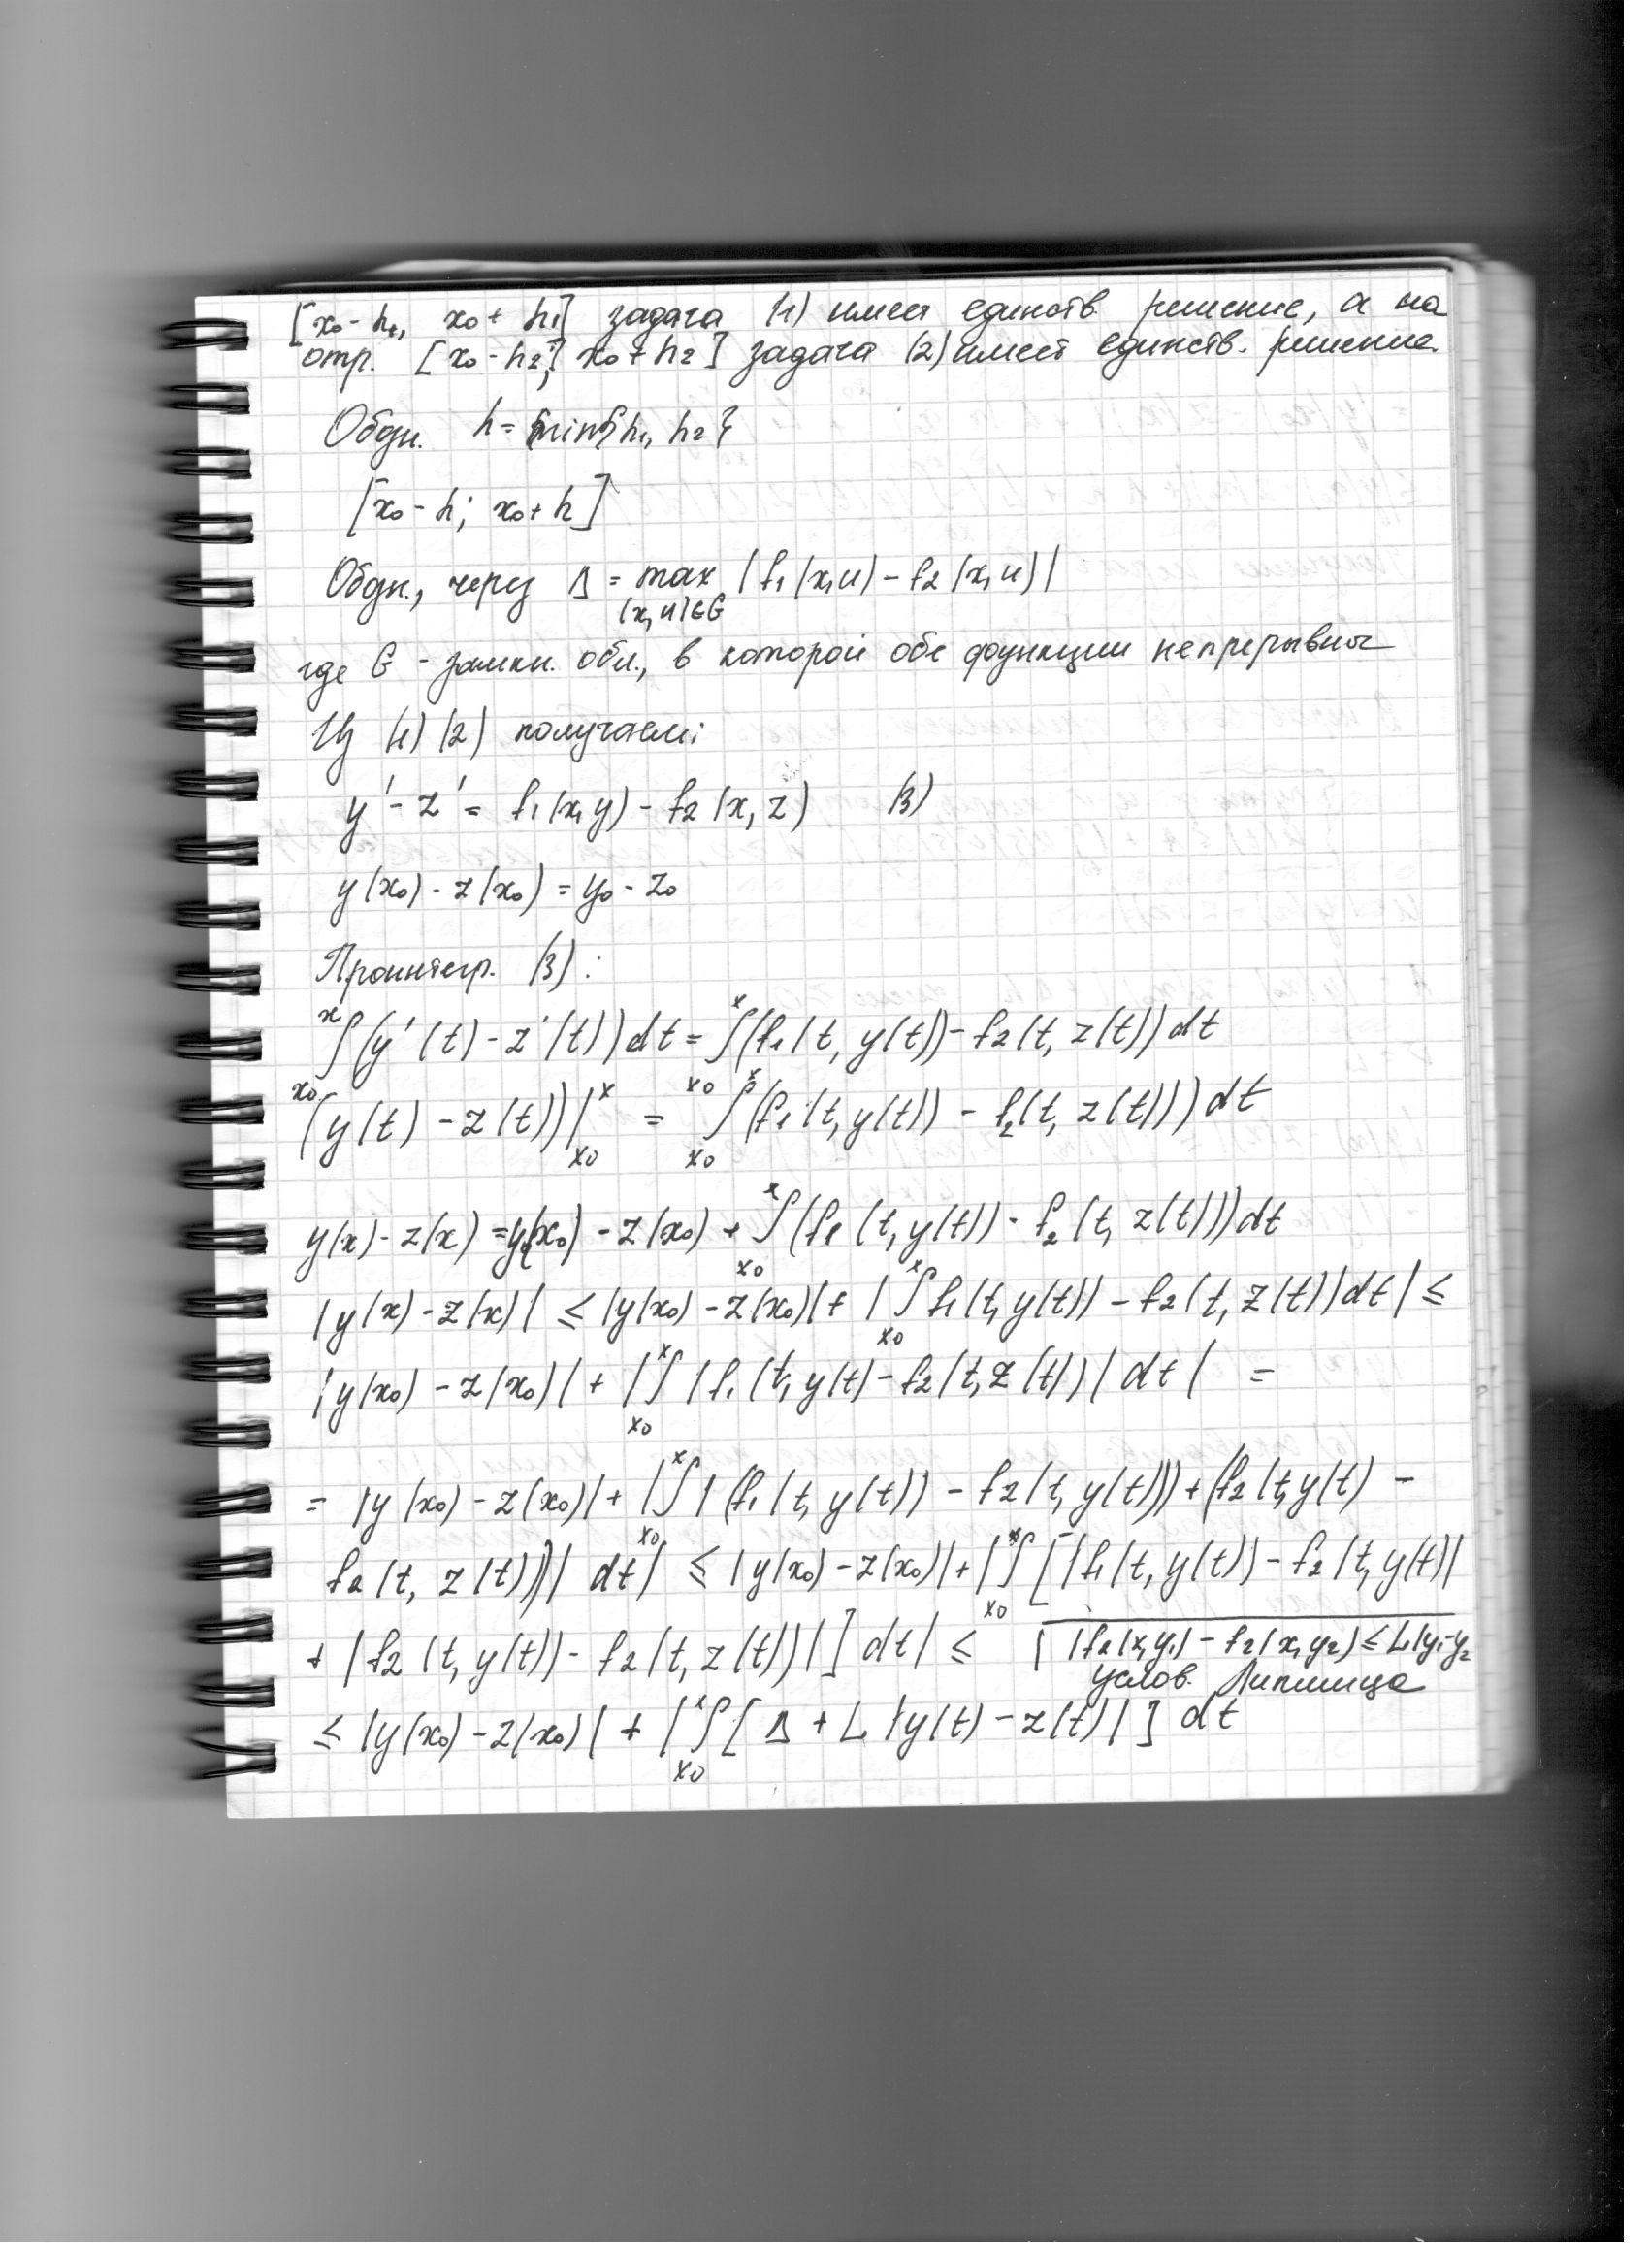 [x₀ - h₁, x₀ + h₁] задача (1) имеет единств. решение, а на
отр. [x₀ - h₂; x₀ + h₂] задача (2) имеет единств. решение.
Обозн. h = min{h₁, h₂}
[x₀ - h; x₀ + h]
Обозн., через Δ = max |f₁(x, u) - f₂(x, u)|
(x, u)∈G
где G - замкн. обл., в которой обе функции непрерывны
Из (1) (2) получаем:
y' - z' = f₁(x, y) - f₂(x, z) (3)
y(x₀) - z(x₀) = y₀ - z₀
Проинтегр. (3):
∫ₓ₀ˣ (y'(t) - z'(t)) dt = ∫ₓ₀ˣ (f₁(t, y(t)) - f₂(t, z(t)) dt
(y(t) - z(t))|ₓ₀ˣ = ∫ₓ₀ˣ (f₁(t, y(t)) - f₂(t, z(t))) dt
y(x) - z(x) = y(x₀) - z(x₀) + ∫ₓ₀ˣ (f₁(t, y(t)) - f₂(t, z(t))) dt
|y(x) - z(x)| ≤ |y(x₀) - z(x₀)| + |∫ₓ₀ˣ f₁(t, y(t)) - f₂(t, z(t)) dt| ≤
|y(x₀) - z(x₀)| + |∫ₓ₀ˣ |f₁(t, y(t) - f₂(t, z(t))| dt| =
= |y(x₀) - z(x₀)| + |∫ₓ₀ˣ |(f₁(t, y(t)) - f₂(t, y(t))) + (f₂(t, y(t) -
f₂(t, z(t)))| dt| ≤ |y(x₀) - z(x₀)| + |∫ₓ₀ˣ [|f₁(t, y(t)) - f₂(t, y(t))|
+ |f₂(t, y(t)) - f₂(t, z(t))|] dt| ≤ | |f₂(x, y₁) - f₂(x, y₂) ≤ L|y₁-y₂
услов. Липшица
≤ |y(x₀) - z(x₀)| + |∫ₓ₀ˣ [Δ + L |y(t) - z(t)|] dt